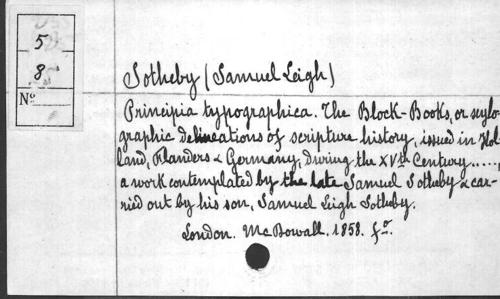 5
8
No
Sotheby (Samuel Leigh)
Principia typographica. The Block-Books, or xylo-
graphic delineations of scripture history, issued in Hol-
land, Flanders & Germany, during the XVth Century.....,
a work contemplated by the late Samuel Sotheby & car-
ried out by his son, Samuel Leigh Sotheby.
London. McDowall. 1858. fo.